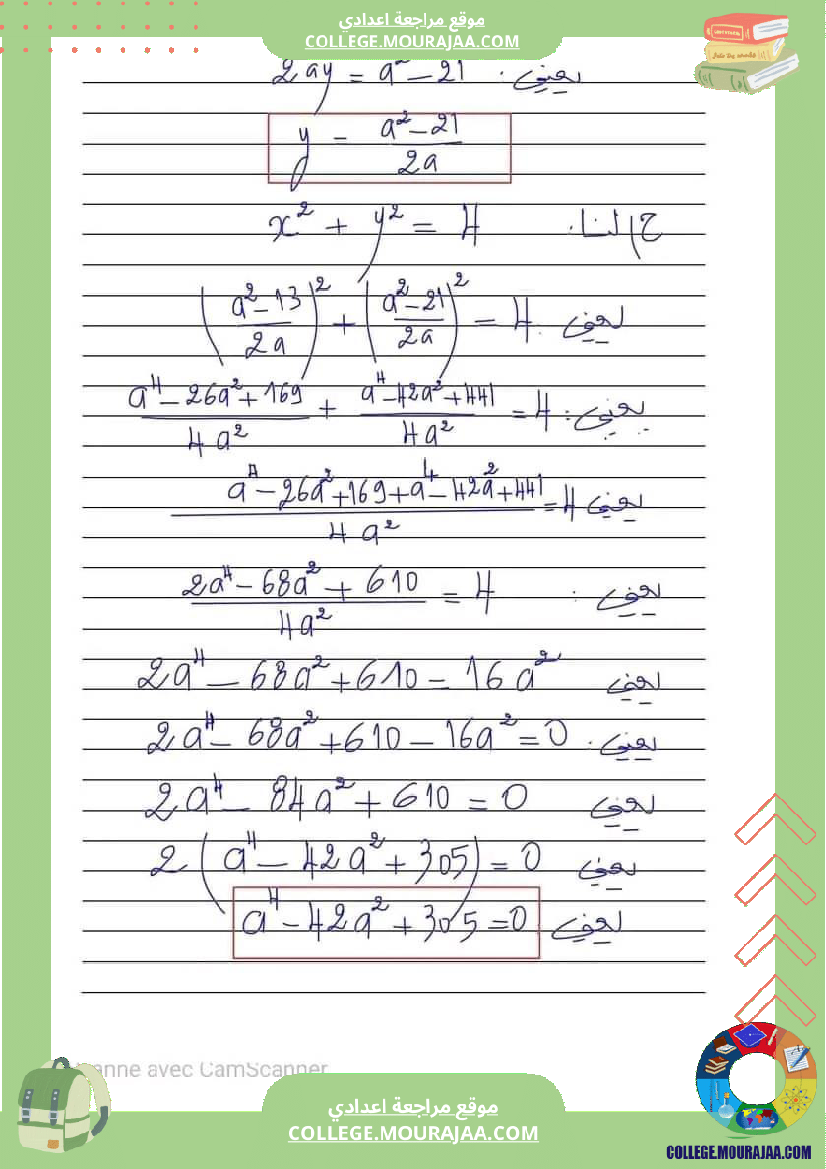 موقع مراجعة اعدادي
COLLEGE.MOURAJAA.COM
يعني: 2ay = a² - 21
y = (a² - 21)/(2a)
ج) لنا: x² + y² = 4
يعني: ((a² - 13)/(2a))² + ((a² - 21)/(2a))² = 4
يعني: (a⁴ - 26a² + 169)/(4a²) + (a⁴ - 42a² + 441)/(4a²) = 4
يعني (a⁴ - 26a² + 169 + a⁴ - 42a² + 441)/(4a²) = 4
يعني: (2a⁴ - 68a² + 610)/(4a²) = 4
يعني 2a⁴ - 68a² + 610 = 16a²
يعني: 2a⁴ - 68a² + 610 - 16a² = 0
يعني 2a⁴ - 84a² + 610 = 0
يعني 2(a⁴ - 42a² + 305) = 0
يعني: a⁴ - 42a² + 305 = 0
anne avec CamScanner
موقع مراجعة اعدادي
COLLEGE.MOURAJAA.COM
COLLEGE.MOURAJAA.COM